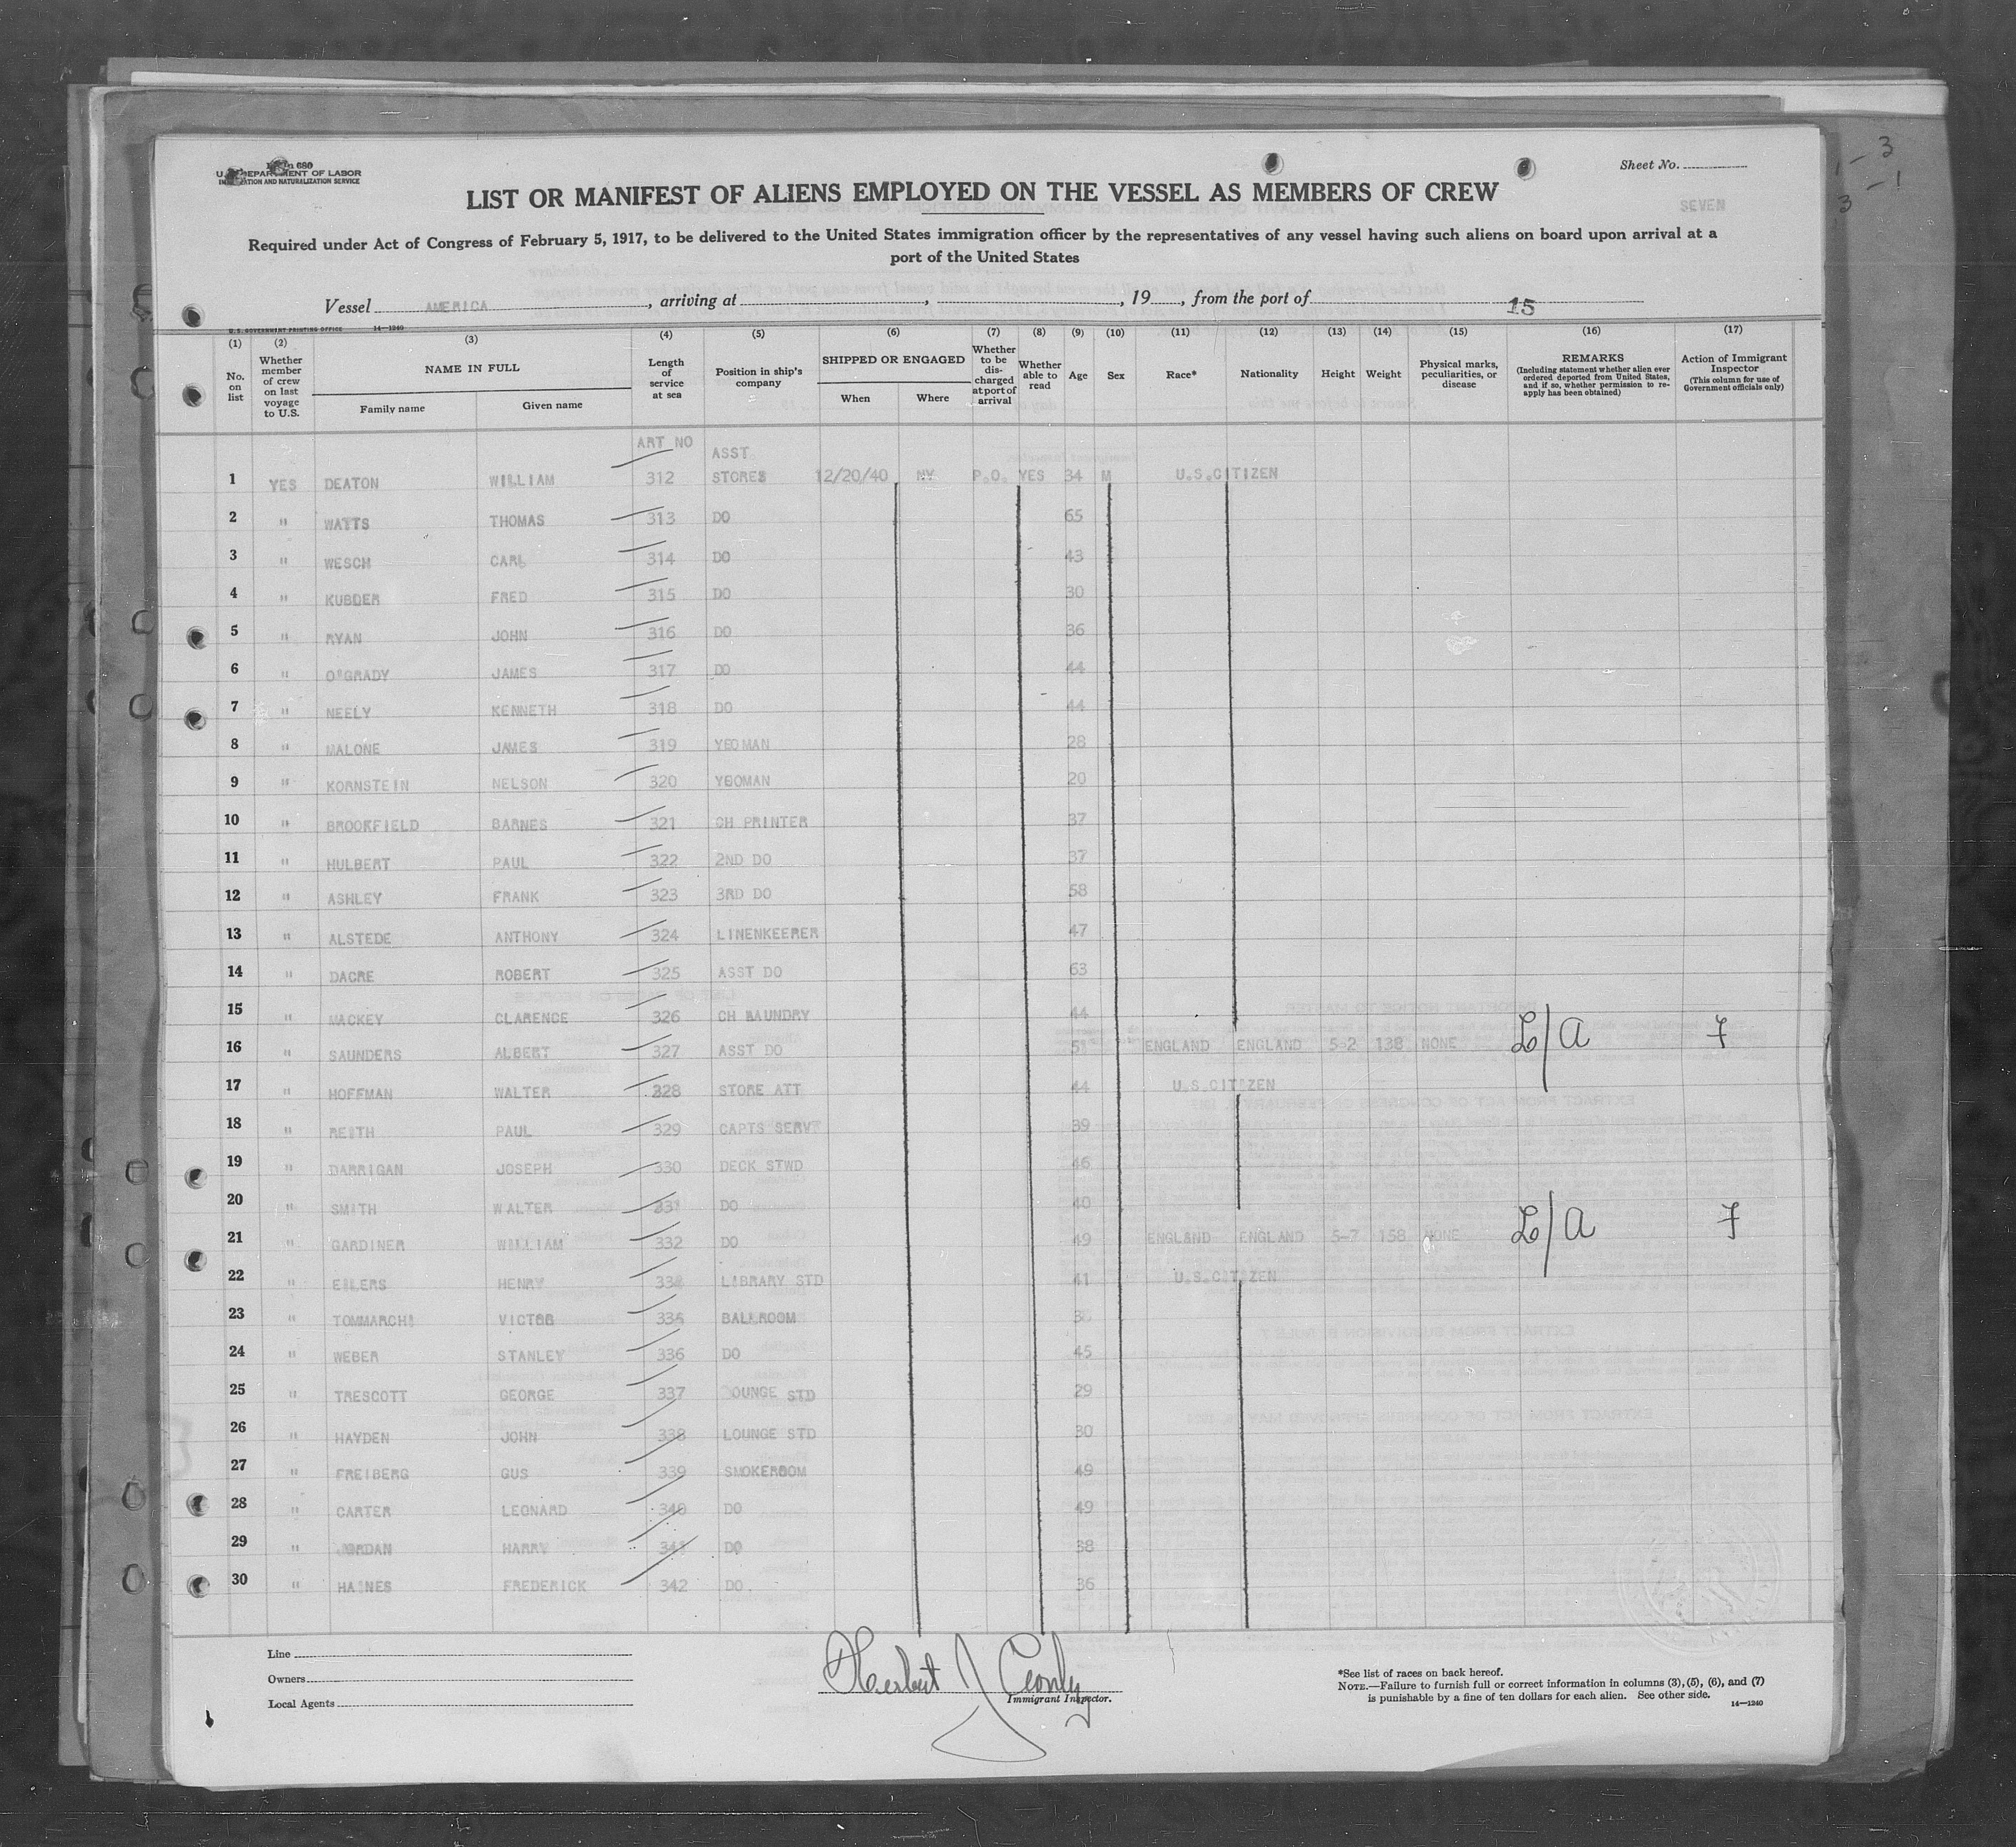 Form 680
U. S. DEPARTMENT OF LABOR
IMMIGRATION AND NATURALIZATION SERVICE
Sheet No.
SEVEN
1 – 3
3 – 1
LIST OR MANIFEST OF ALIENS EMPLOYED ON THE VESSEL AS MEMBERS OF CREW
Required under Act of Congress of February 5, 1917, to be delivered to the United States immigration officer by the representatives of any vessel having such aliens on board upon arrival at a
port of the United States
Vessel AMERICA, arriving at , , 19 , from the port of 15
U. S. GOVERNMENT PRINTING OFFICE 14—1240
(1) No. on list
(2) Whether member of crew on last voyage to U.S.
(3) NAME IN FULL Family name Given name
(4) Length of service at sea
(5) Position in ship's company
(6) SHIPPED OR ENGAGED When Where
(7) Whether to be discharged at port of arrival
(8) Whether able to read
(9) Age
(10) Sex
(11) Race*
(12) Nationality
(13) Height
(14) Weight
(15) Physical marks, peculiarities, or disease
(16) REMARKS (Including statement whether alien ever ordered deported from United States, and if so, whether permission to re-apply has been obtained)
(17) Action of Immigrant Inspector (This column for use of Government officials only)
ART NO
ASST
1 YES DEATON WILLIAM 312 STORES 12/20/40 NY P.O. YES 34 M U.S.CITIZEN
2 " WATTS THOMAS 313 DO 65
3 " WESCH CARL 314 DO 43
4 " KUBDER FRED 315 DO 30
5 " RYAN JOHN 316 DO 36
6 " O'GRADY JAMES 317 DO 44
7 " NEELY KENNETH 318 DO 44
8 " MALONE JAMES 319 YEOMAN 28
9 " KORNSTEIN NELSON 320 YEOMAN 20
10 " BROOKFIELD BARNES 321 CH PRINTER 37
11 " HULBERT PAUL 322 2ND DO 37
12 " ASHLEY FRANK 323 3RD DO 58
13 " ALSTEDE ANTHONY 324 LINENKEERER 47
14 " DACRE ROBERT 325 ASST DO 63
15 " MACKEY CLARENCE 326 CH LAUNDRY 44
16 " SAUNDERS ALBERT 327 ASST DO ENGLAND ENGLAND 5-2 138 NONE L/A F
17 " HOFFMAN WALTER 328 STORE ATT 44 U.S.CITIZEN
18 " REITH PAUL 329 CAPTS SERVT 39
19 " DARRIGAN JOSEPH 330 DECK STWD 46
20 " SMITH WALTER 331 DO 40
21 " GARDINER WILLIAM 332 DO 49 ENGLAND ENGLAND 5-7 158 NONE L/A F
22 " EILERS HENRY LIBRARY STD 41 U.S.CITIZEN
23 " TOMMARCHI VICTOR BALLROOM
24 " WEBER STANLEY 336 DO 45
25 " TRESCOTT GEORGE 337 LOUNGE STD 29
26 " HAYDEN JOHN 338 LOUNGE STD 30
27 " FREIBERG GUS 339 SMOKEROOM 49
28 " CARTER LEONARD 340 DO 49
29 " JORDAN HARRY 341 DO 38
30 " HAINES FREDERICK 342 DO. 36
Line
Owners
Local Agents
Herbert J
Immigrant Inspector.
*See list of races on back hereof.
NOTE.—Failure to furnish full or correct information in columns (3), (5), (6), and (7)
is punishable by a fine of ten dollars for each alien. See other side. 14—1240